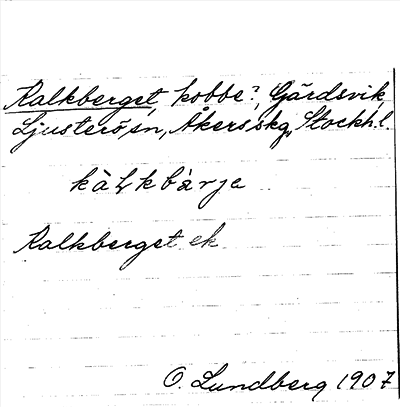 Kalkberget, kobbe?, Gärdsvik,
Ljusterö sn, Åkers skg, Stockh.l.
kàlkbàrje
Kalkberget ek
O. Lundberg 1907